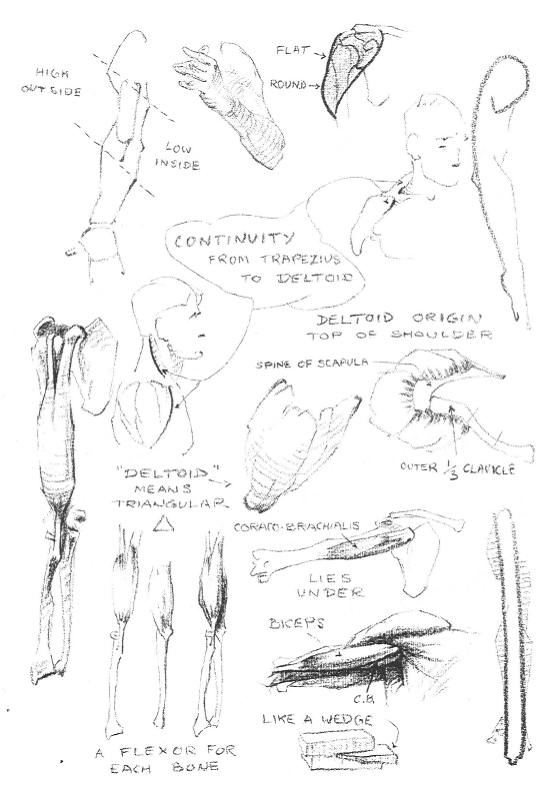 FLAT
ROUND
HIGH
OUTSIDE
LOW
INSIDE
CONTINUITY
FROM TRAPEZIUS
TO DELTOID
DELTOID ORIGIN
TOP OF SHOULDER
SPINE OF SCAPULA
OUTER 1/3 CLAVICLE
"DELTOID"
MEANS
TRIANGULAR
CORACO-BRACHIALIS
LIES
UNDER
BICEPS
C.B.
LIKE A WEDGE
A FLEXOR FOR
EACH BONE